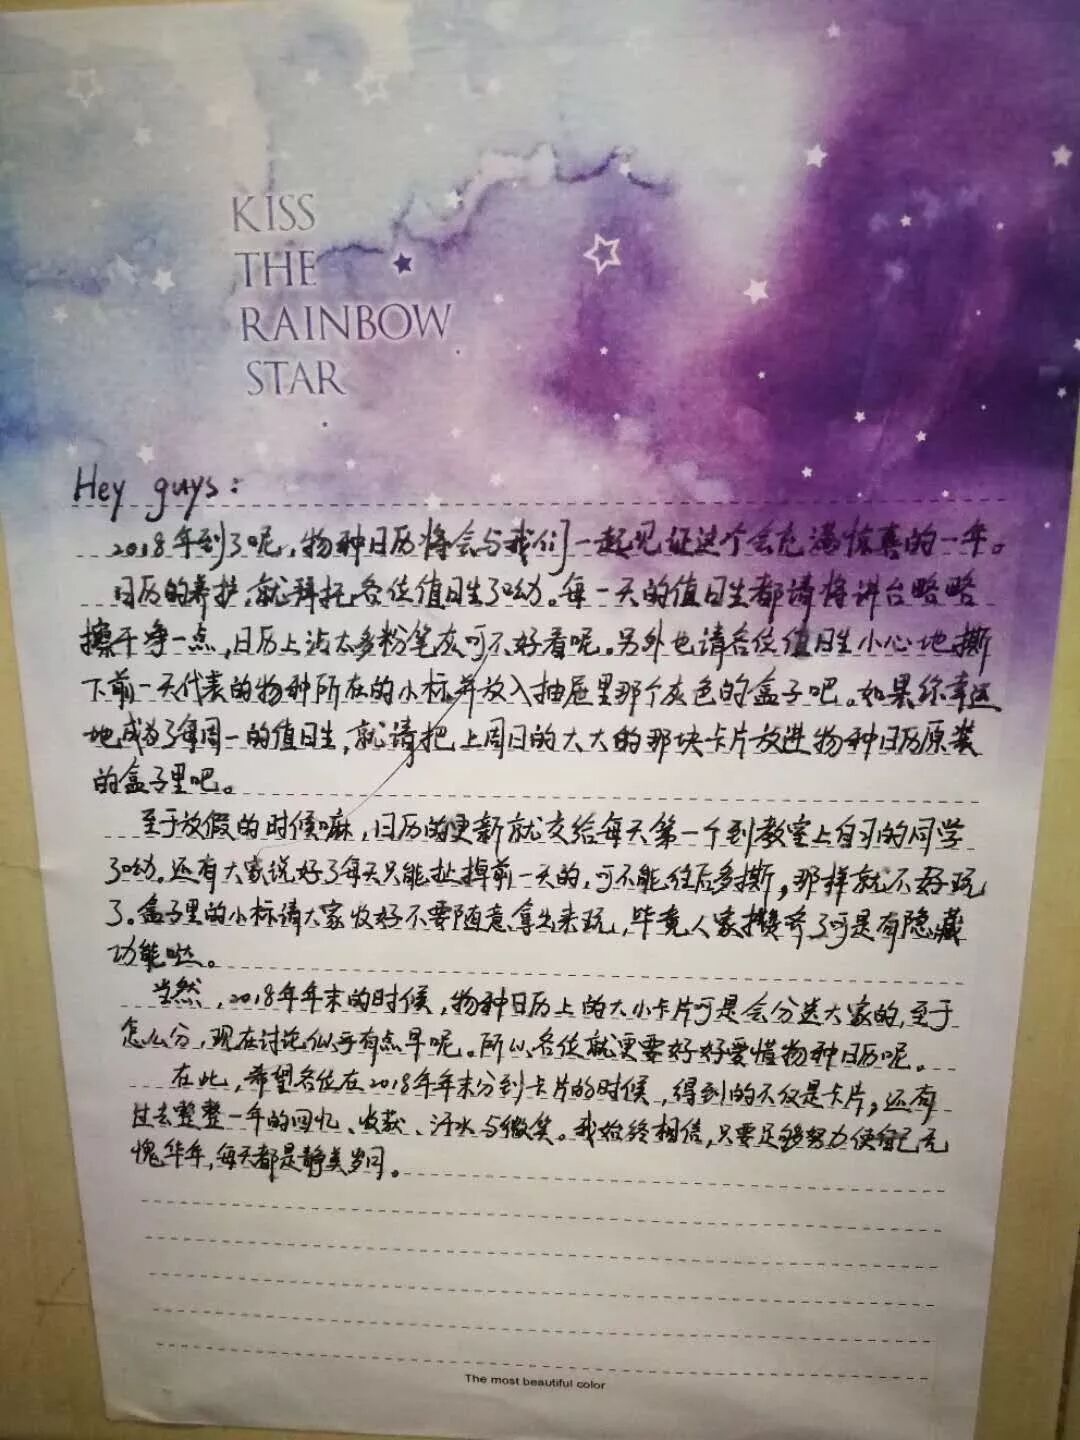 KISS
THE
RAINBOW
STAR
Hey guys:
2018年到了呢,物种日历将会与我们一起见证这个会充满惊喜的一年。
日历的养护,就拜托各位值日生了呦。每一天的值日生都请将讲台略略
擦干净一点,日历上沾太多粉笔灰可不好看呢。另外也请各位值日生小心地撕
下前一天代表的物种所在的小标并放入抽屉里那个灰色的盒子吧。如果你幸运
地成为了每周一的值日生,就请把上周日的大大的那块卡片放进物种日历原装
的盒子里吧。
至于放假的时候嘛,日历的更新就交给每天第一个到教室上自习的同学
了呦。还有大家说好了每天只能扯掉前一天的,可不能往后多撕,那样就不好玩
了。盒子里的小标请大家收好不要随意拿出来玩,毕竟人家攒齐了可是有隐藏
功能哒。
当然,2018年年末的时候,物种日历上的大小卡片可是会分送大家的,至于
怎么分,现在讨论似乎有点早呢。所以各位就更要好好爱惜物种日历呢。
在此,希望各位在2018年年末分到卡片的时候,得到的不仅是卡片,还有
过去整整一年的回忆、收获、汗水与微笑。我始终相信,只要足够努力使自己无
愧华年,每天都是静美岁月。
The most beautiful color